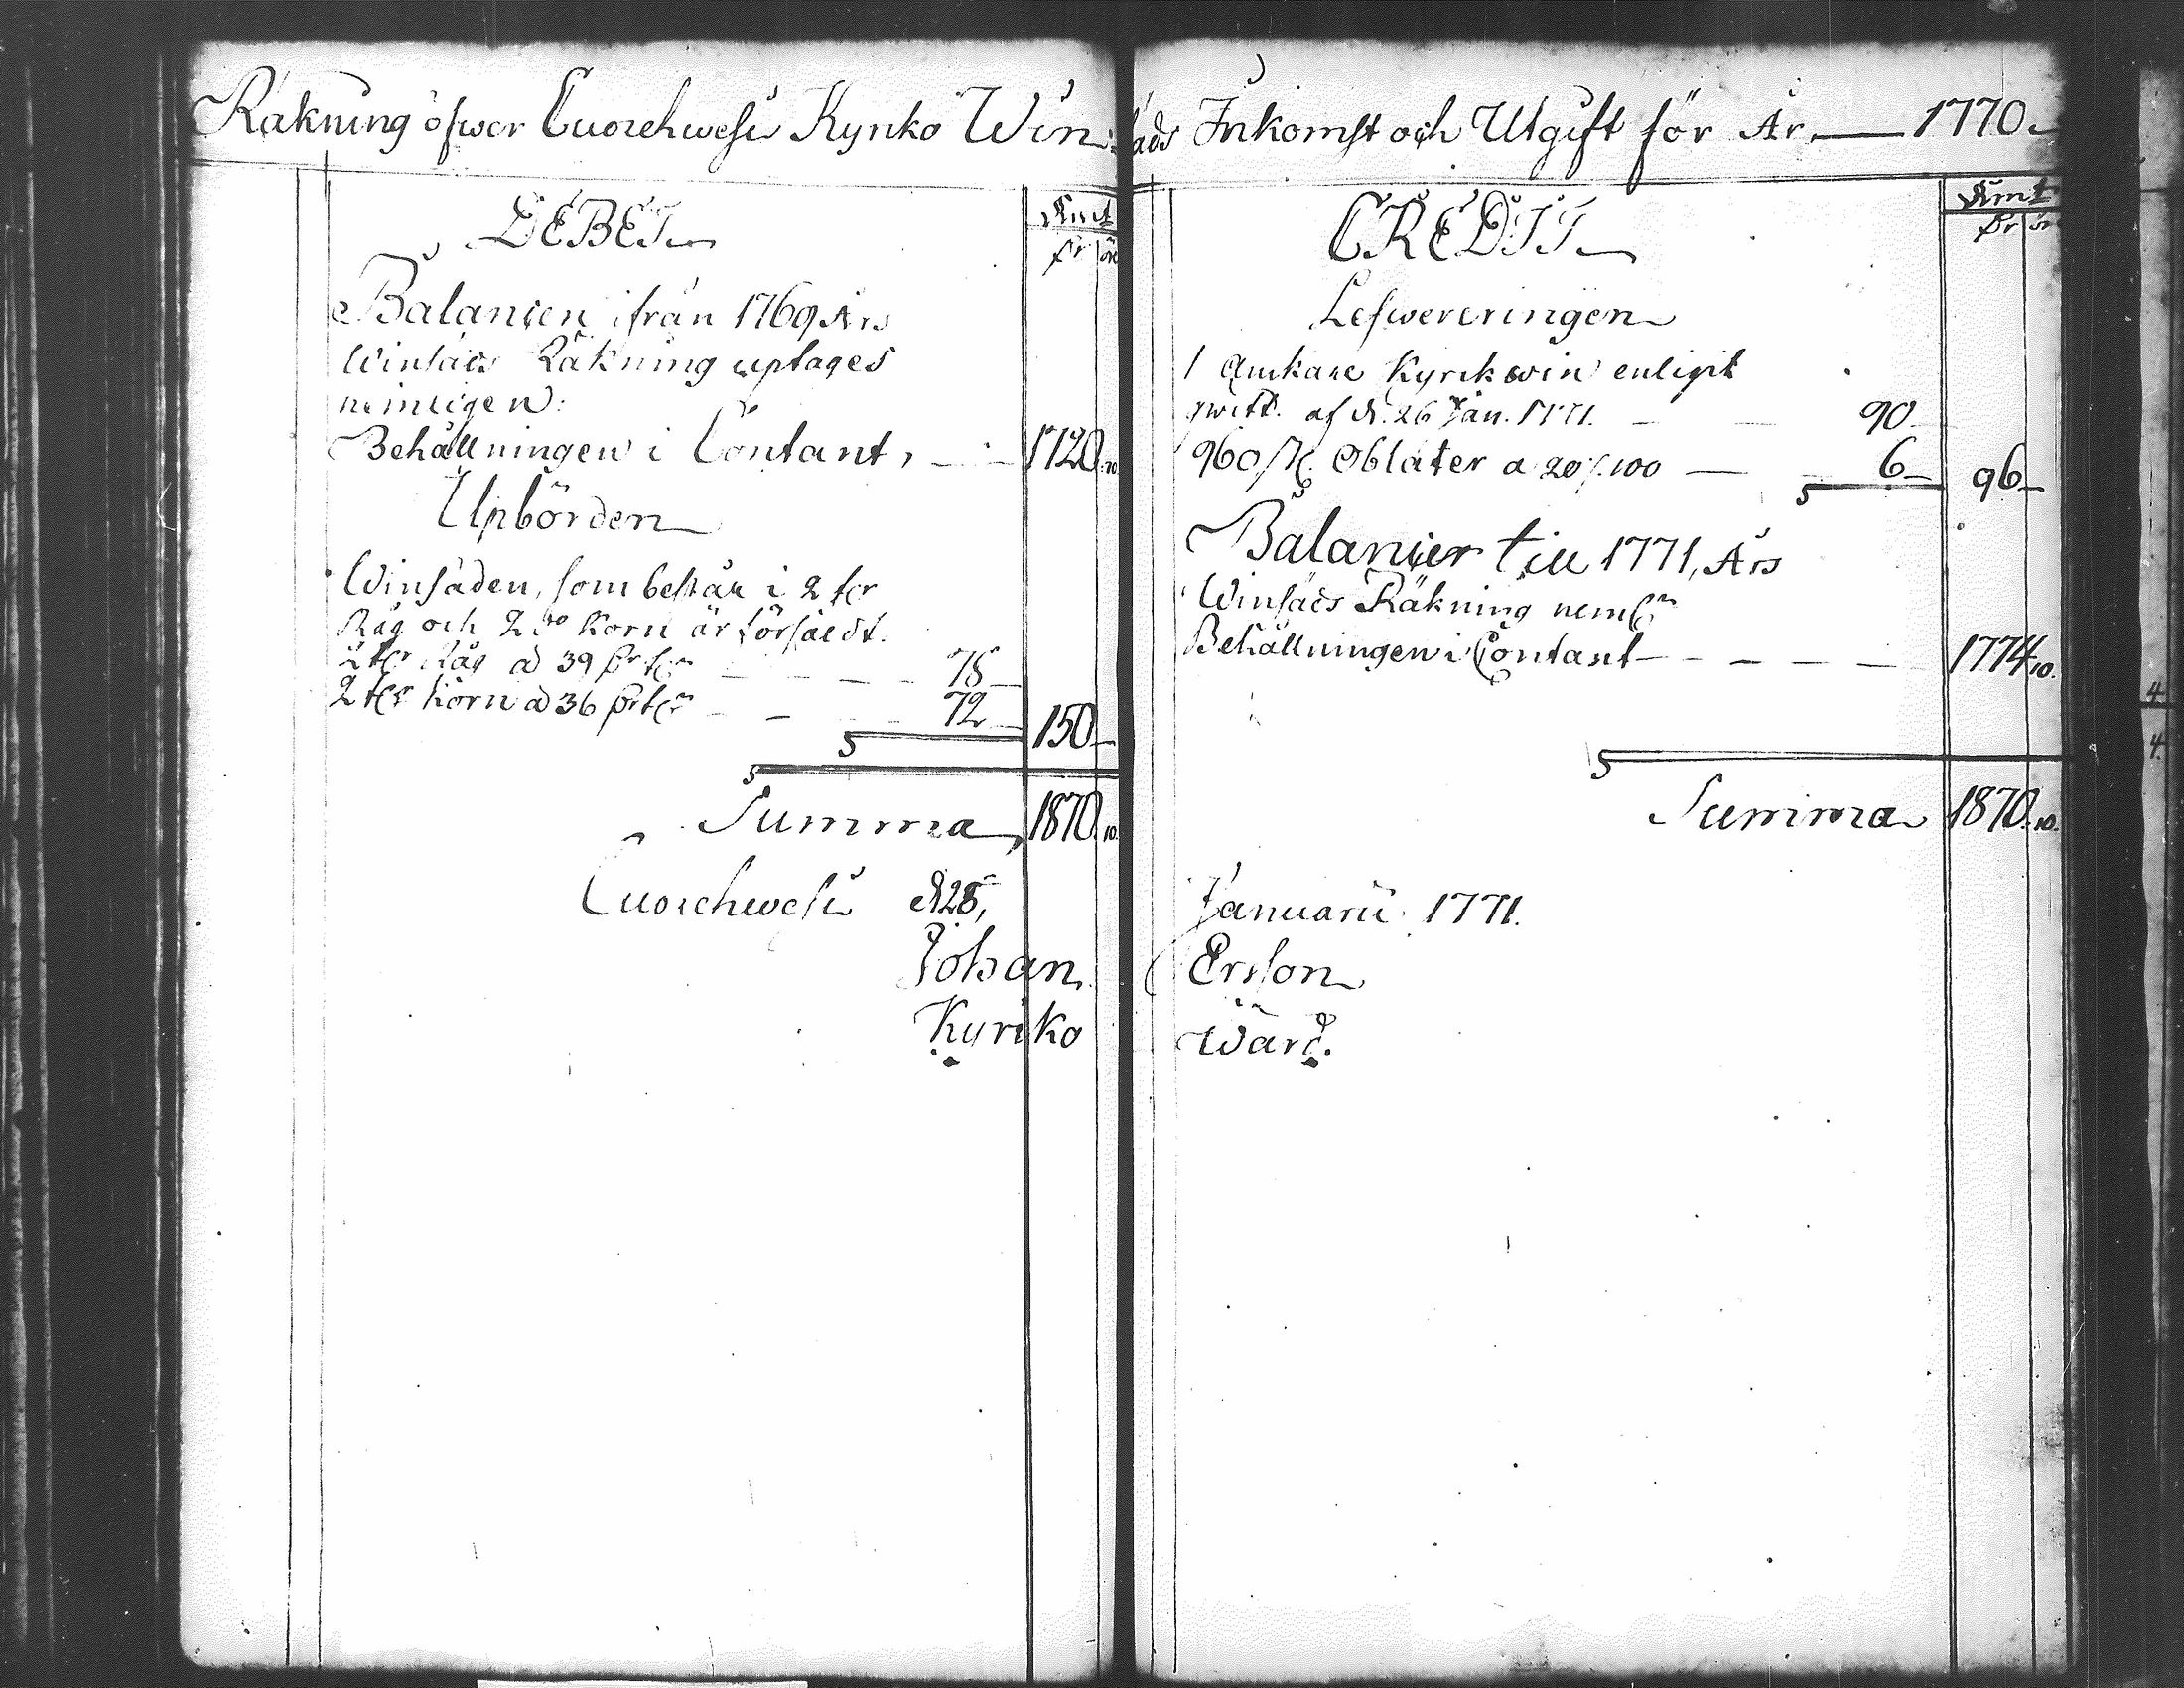 Räkning öfwer Cuorehwesi Kyrko Winsäds Inkomst och Utgift för År 1770.
DEBET
Kmt
Dr öre
Balancen ifrån 1769 Års
Winsäds Räkning uptages
nemligen:
Behållningen i Contant, 1720. 10
Upbörden
Winsäden, som består i 2 tr
Råg och 2 do Korn är försåldt.
2 tr Råg a 39 Dr tr 78
2 tr Korn a 36 Dr tr 72 150
Summa 1870. 10.
Cuorehwesi d 28,
Johan
Kyrko
CREDIT
Kmt
Dr ör
Lefwereringen
1 Ankare Kyrkwin enligit
qwitt. af d. 26 Jan. 1771. 90
960 st. Oblater a 20 /. 100 6 96
Balancer till 1771, Års
Winsäds Räkning neml:n
Behållningen i Contant 1774. 10.
Summa 1870. 10.
Januarii 1771.
Ersson
Wärd.
4
4.